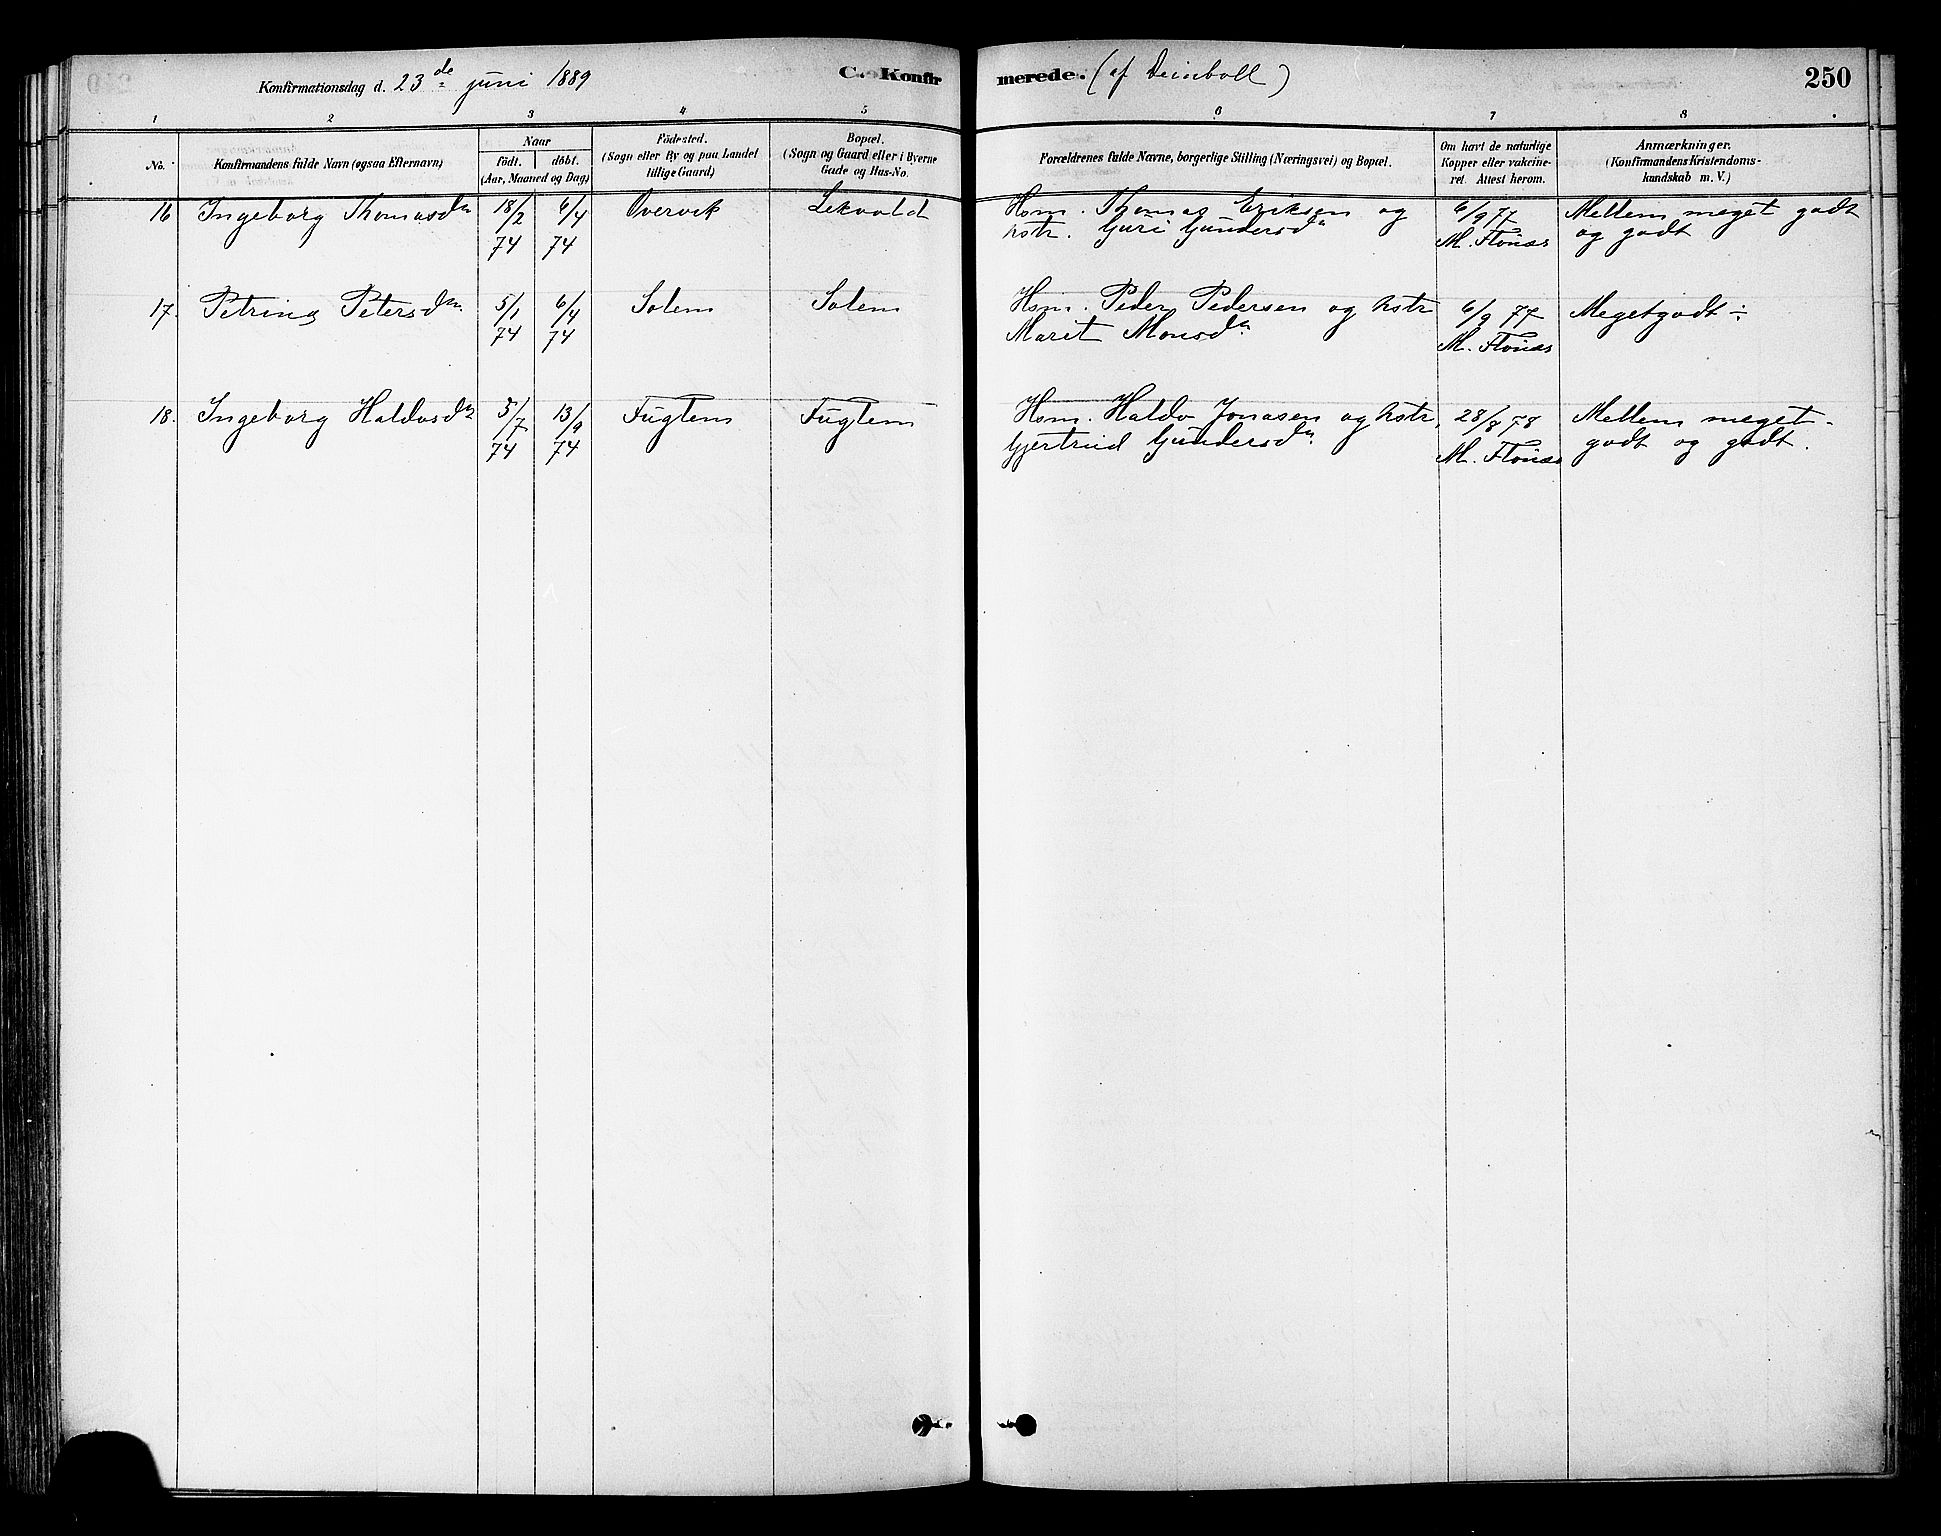 Konfirmationsdag d. 23de juni 1889 C. Konfirmerede. (af Deinboll) 250
1 2 3 4 5 6 7 8
No. Konfirmandens fulde Navn (ogsaa Efternavn) Naar født. døbt. (Aar, Maaned og Dag) Fødested. (Sogn eller By og paa Landet tillige Gaard) Bopæl. (Sogn og Gaard eller i Byerne Gade og Hus-No. Forældrenes fulde Navne, borgerlige Stilling (Næringsvei) og Bopæl. Om havt de naturlige Kopper eller vakcineret. Attest herom. Anmærkninger. (Konfirmandens Kristendomskundskab m. V.)
16 Ingeborg Thomasdn 18/2 6/4 Overvik Lekvold Hsm. Thomas Eriksen og 6/9 77 Mellem meget godt
74 74 hstr. Guri Gundersdn M. Flønes og godt
17. Petrina Petersdn 5/1 6/4 Solem Solem Hsm. Peder Pedersen og hstr 6/9 77 Megetgodt ÷
74 74 Marit Monsdn M. Flønes
18. Ingeborg Haldosdn 5/7 13/9 Fuglem Fuglem Hsm. Haldo Jonasen og hstr. 28/8 78 Mellem meget-
74 74 Gjertrud Gundersdn M. Flønes godt og godt.